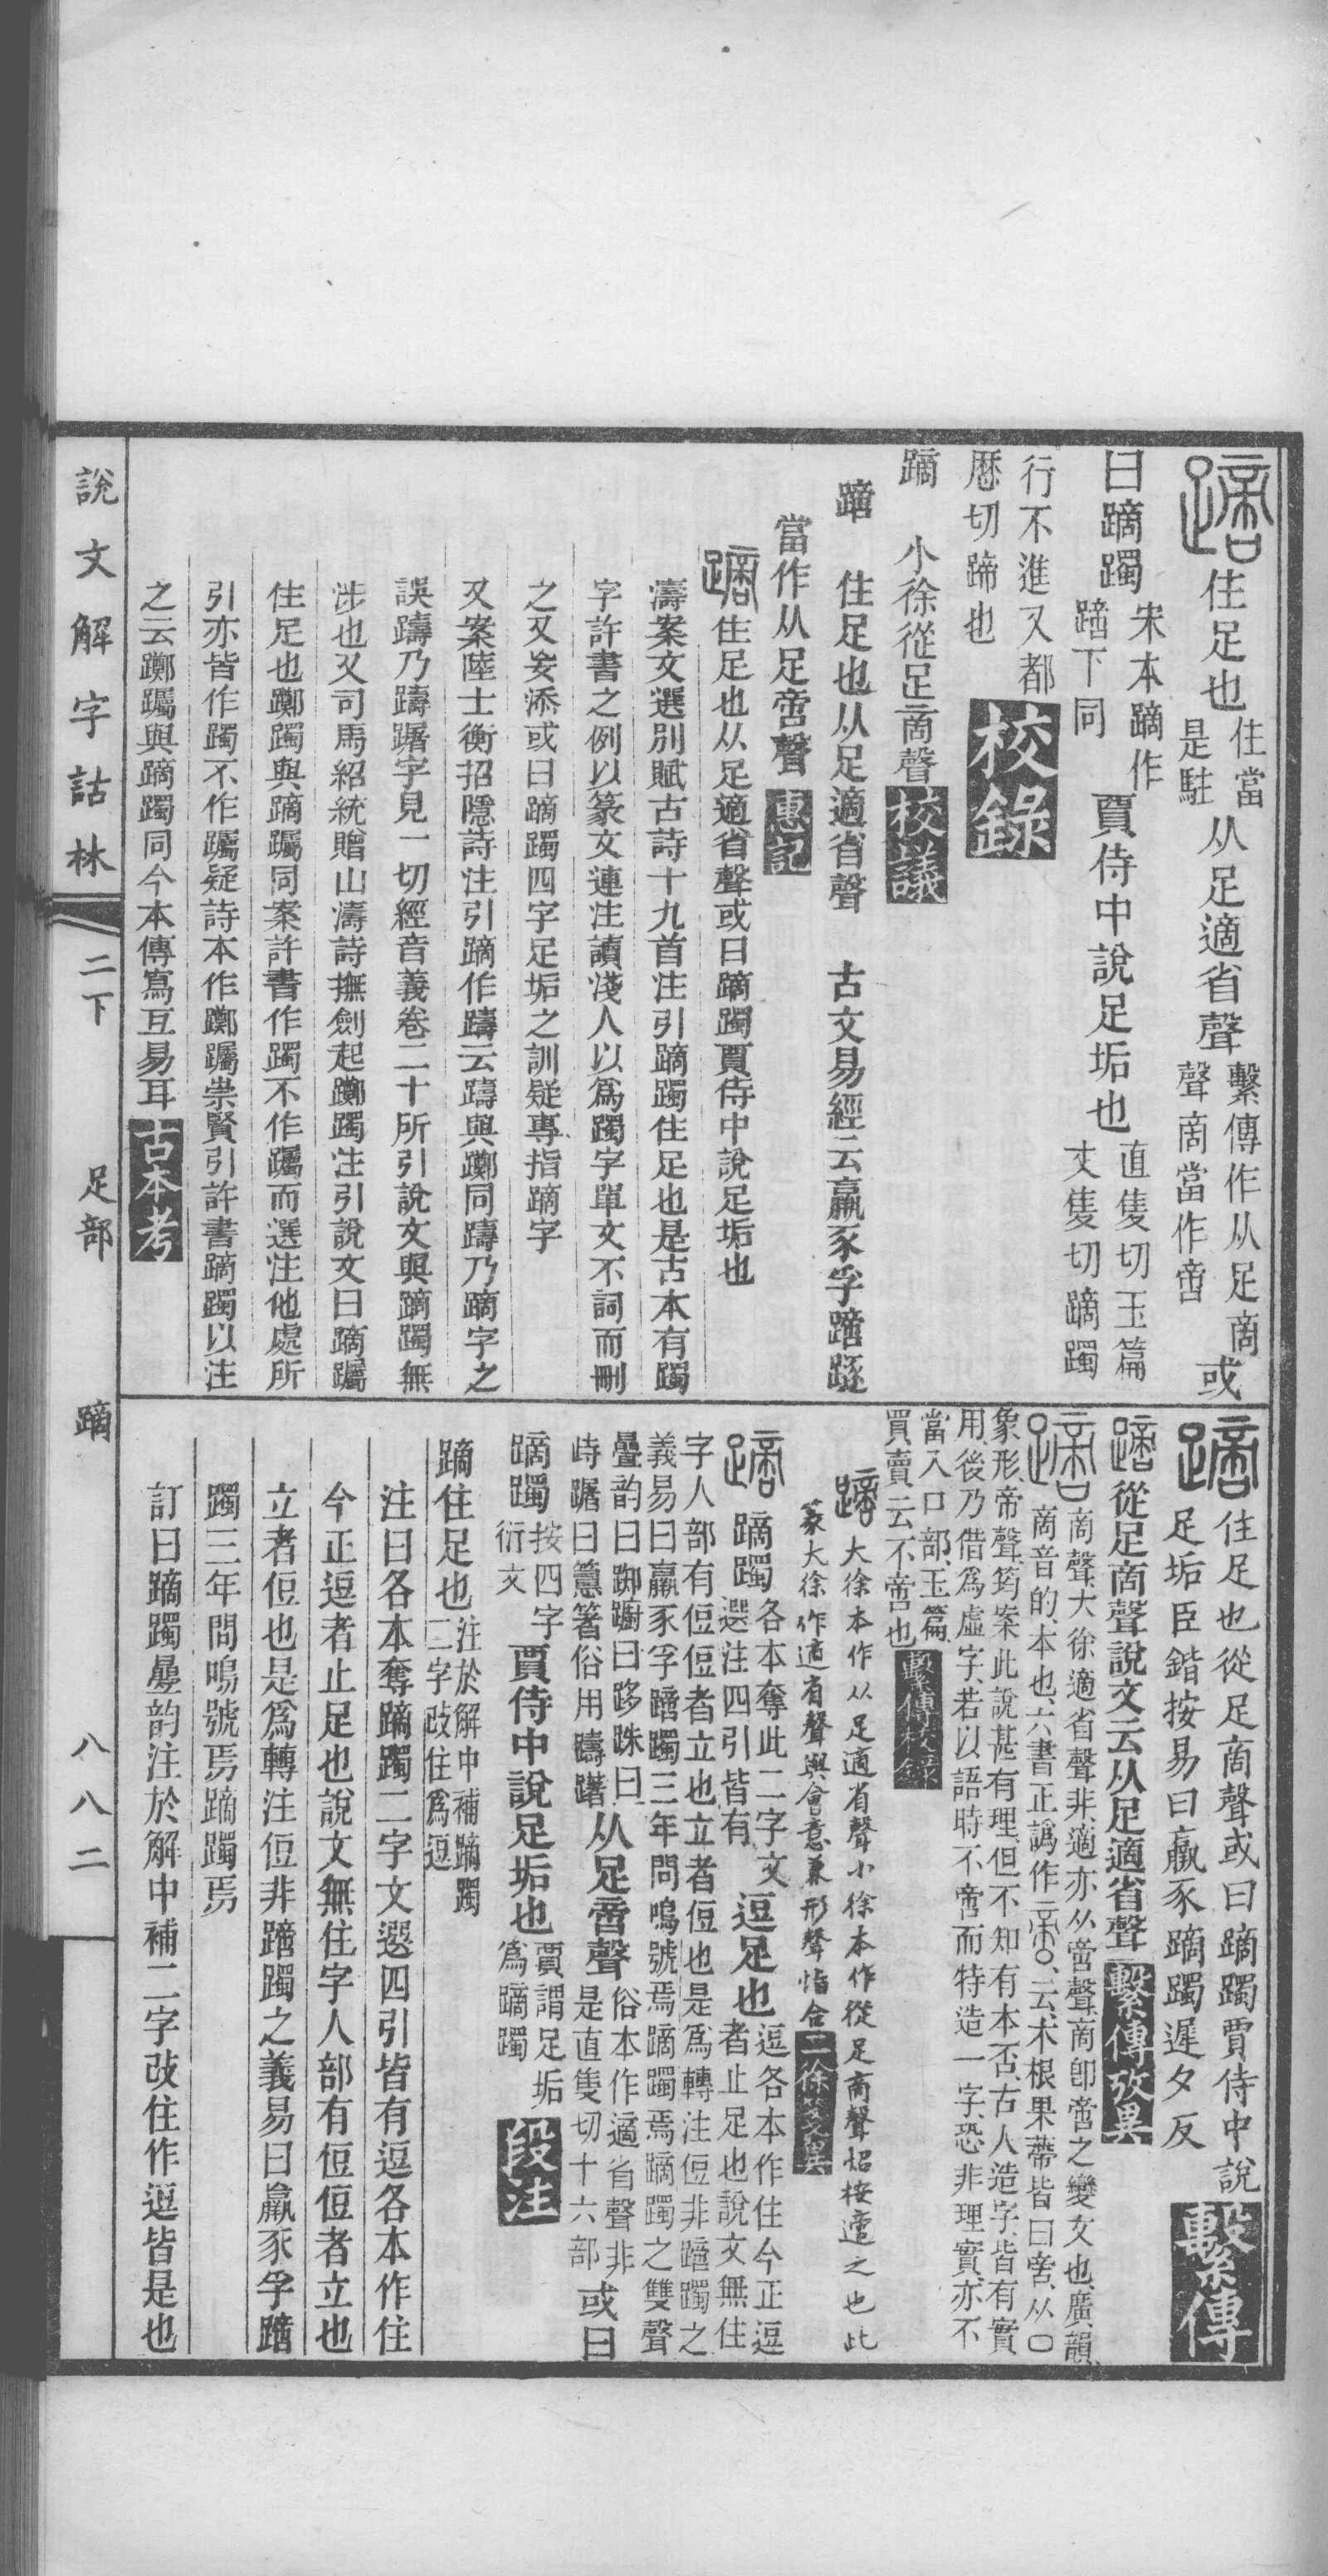 住足也住當是駐从足適省聲繫傳作从足啇聲啇當作啻或
曰蹢躅宋本蹢作䠱下同賈侍中說足垢也直隻切玉篇丈隻切蹢躅
行不進又都厯切蹄也校錄
蹢 小徐從足啇聲校議
住足也从足適省聲 古文易經云羸豕孚
當作从足啻聲惠記
住足也从足適省聲或曰蹢躅賈侍中說足垢也
濤案文選別賦古詩十九首注引蹢躅住足也是古本有躅
字許書之例以篆文連注讀淺人以爲躅字單文不詞而刪
之又妄添或曰蹢躅四字足垢之訓疑專指蹢字
又案陸士衡招隱詩注引蹢作躊云躊與躑同躊乃蹢字之
誤躊乃躊躇字見一切經音義卷二十所引說文與蹢躅無
涉也又司馬紹統贈山濤詩撫劍起躑躅注引說文曰蹢躅
住足也躑躅與蹢躅同案許書作躅不作躅而選注他處所
引亦皆作躅不作躅疑詩本作躑躅崇賢引許書蹢躅以注
之云躑躅與蹢躅同今本傳寫互易耳古本考
住足也從足啇聲或曰蹢躅賈侍中說
足垢臣鍇按易曰羸豕蹢躅遲夕反繫傳
從足啇聲說文云从足適省聲繫傳攷異
啇聲大徐適省聲非適亦从啻聲啇卽啻之變文也廣韻
啇音的本也六書正譌作云木根果蒂皆曰啻从口
象形帝聲筠案此說甚有理但不知有本否古人造字皆有實
用後乃借爲虛字若以語時不啻而特造一字恐非理實亦不
當入口部玉篇
買賣云不啻也繫傳校錄
大徐本作从足適省聲小徐本作從足啇聲
篆大徐作適省聲與會意兼形聲恉合二徐箋異
蹢躅各本奪此二字文選注四引皆有逗足也逗各本作住今正逗者止足也說文無住
字人部有侸侸者立也立者侸也是爲轉注侸非蹢躅之
義易曰羸豕孚蹢躅三年問鳴號焉蹢躅焉蹢躅之雙聲
曡韵曰踟躕曰跢跦曰峙䠧曰簋箸俗用躊躇从足啻聲俗本作適省聲非是直隻切十六部或曰
蹢躅按四字衍文賈侍中說足垢也賈謂足垢爲蹢躅段注
蹢住足也注於解中補蹢躅二字改住爲逗
注曰各本奪蹢躅二字文選四引皆有逗各本作住
今正逗者止足也說文無住字人部有侸侸者立也
立者侸也是爲轉注侸非蹢躅之義易曰羸豕孚蹢
躅三年問鳴號焉蹢躅焉
訂曰蹢躅曡韵注於解中補二字改住作逗皆是也
說文解字詁林 二下 足部 蹢 八八二